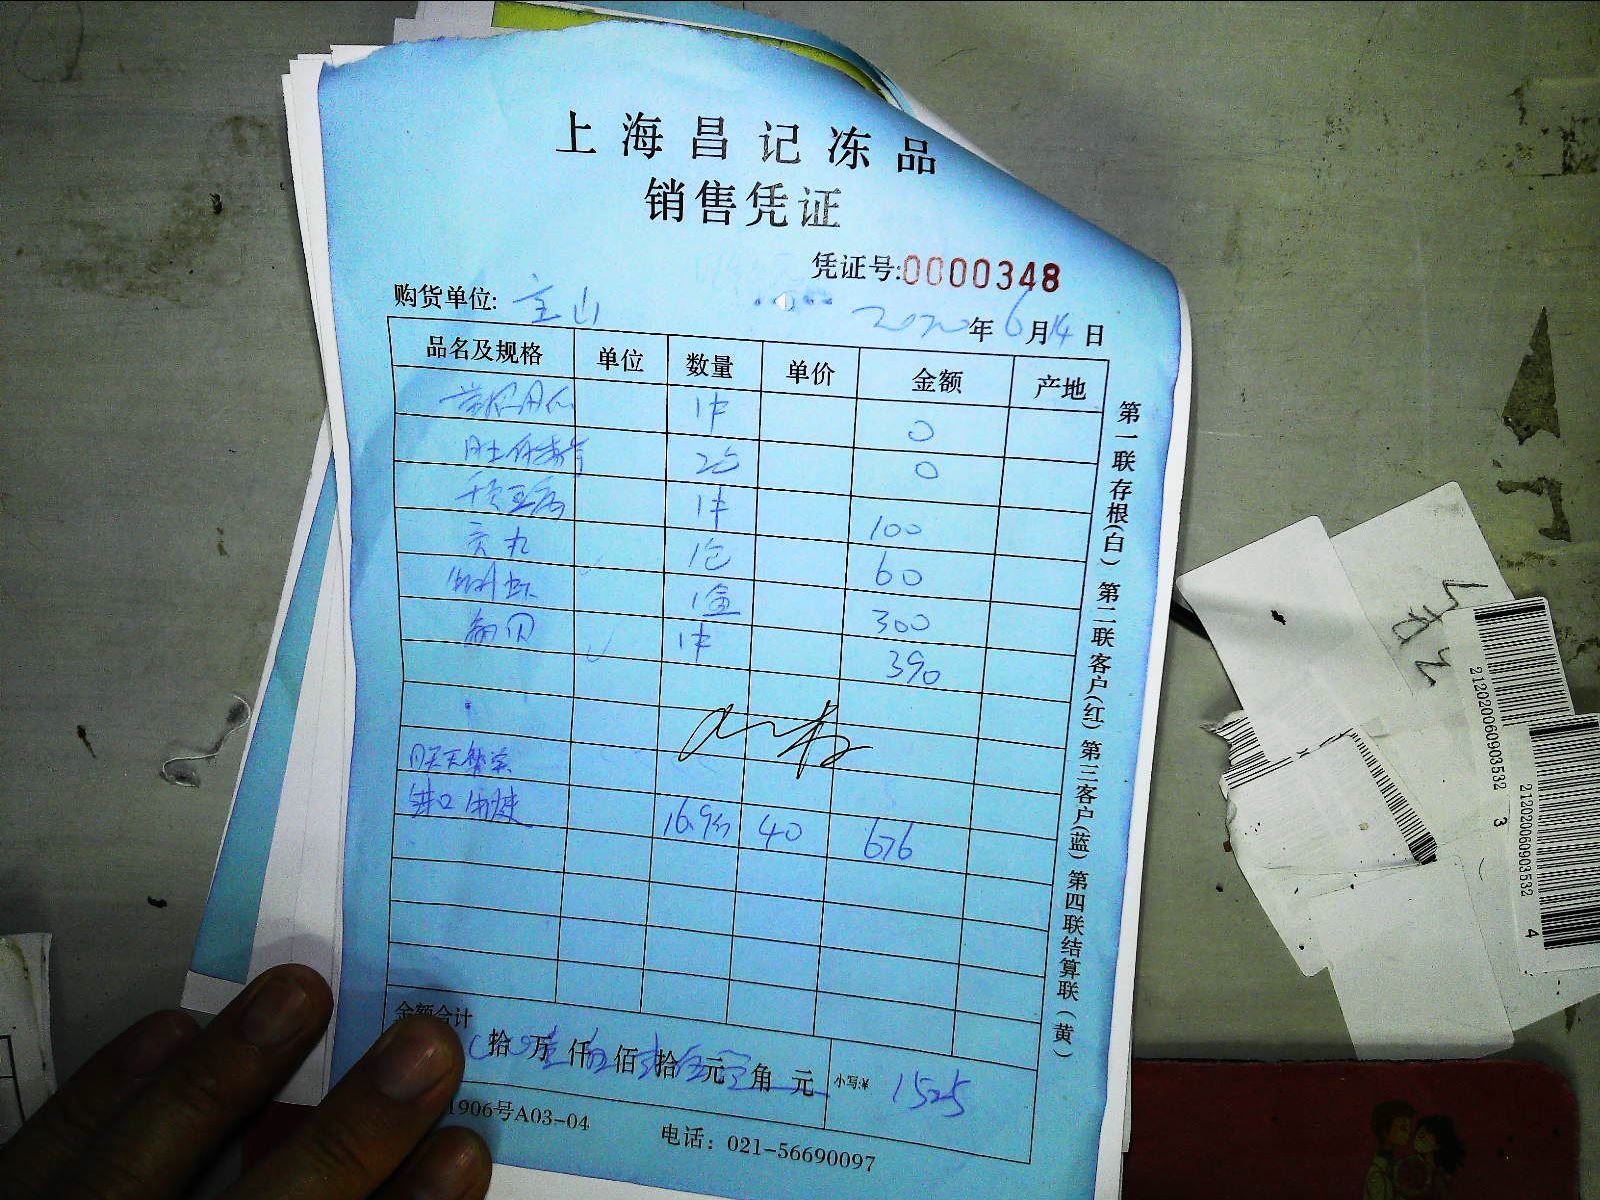 上海昌记冻品
销售凭证
凭证号:0000348
购货单位: 宝山 2020年6月14日
品名及规格 单位 数量 单价 金额 产地
1件 0
2包 0
1件 100
贡丸 1包 60
1盒 300
扇贝 1件 390
昨天
进口牛腱 16.9斤 40 676
金额合计 拾万壹仟伍佰贰拾伍元 角 元 小写:¥ 1525
1906号A03-04 电话：021-56690097
第一联存根(白) 第二联客户(红) 第三客户(蓝) 第四联结算联(黄)
212020060903532 3
212020060903532 4